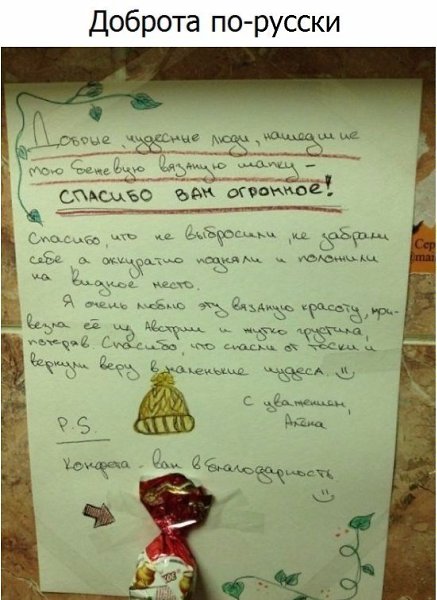 Доброта по-русски
Добрые, чудесные люди, нашедшие
мою бежевую вязаную шапку –
СПАСИБО ВАМ ОГРОМНОЕ!
Спасибо, что не выбросили, не забрали
себе а аккуратно подняли и положили
на видное место.
Я очень люблю эту вязаную красоту, при-
везла её из Австрии и жутко грустила,
потеряв. Спасибо, что спасли от тоски и
вернули веру в маленькие чудеса.
С уважением,
Алёна
P.S.
Конфета - вам в благодарность
Сер